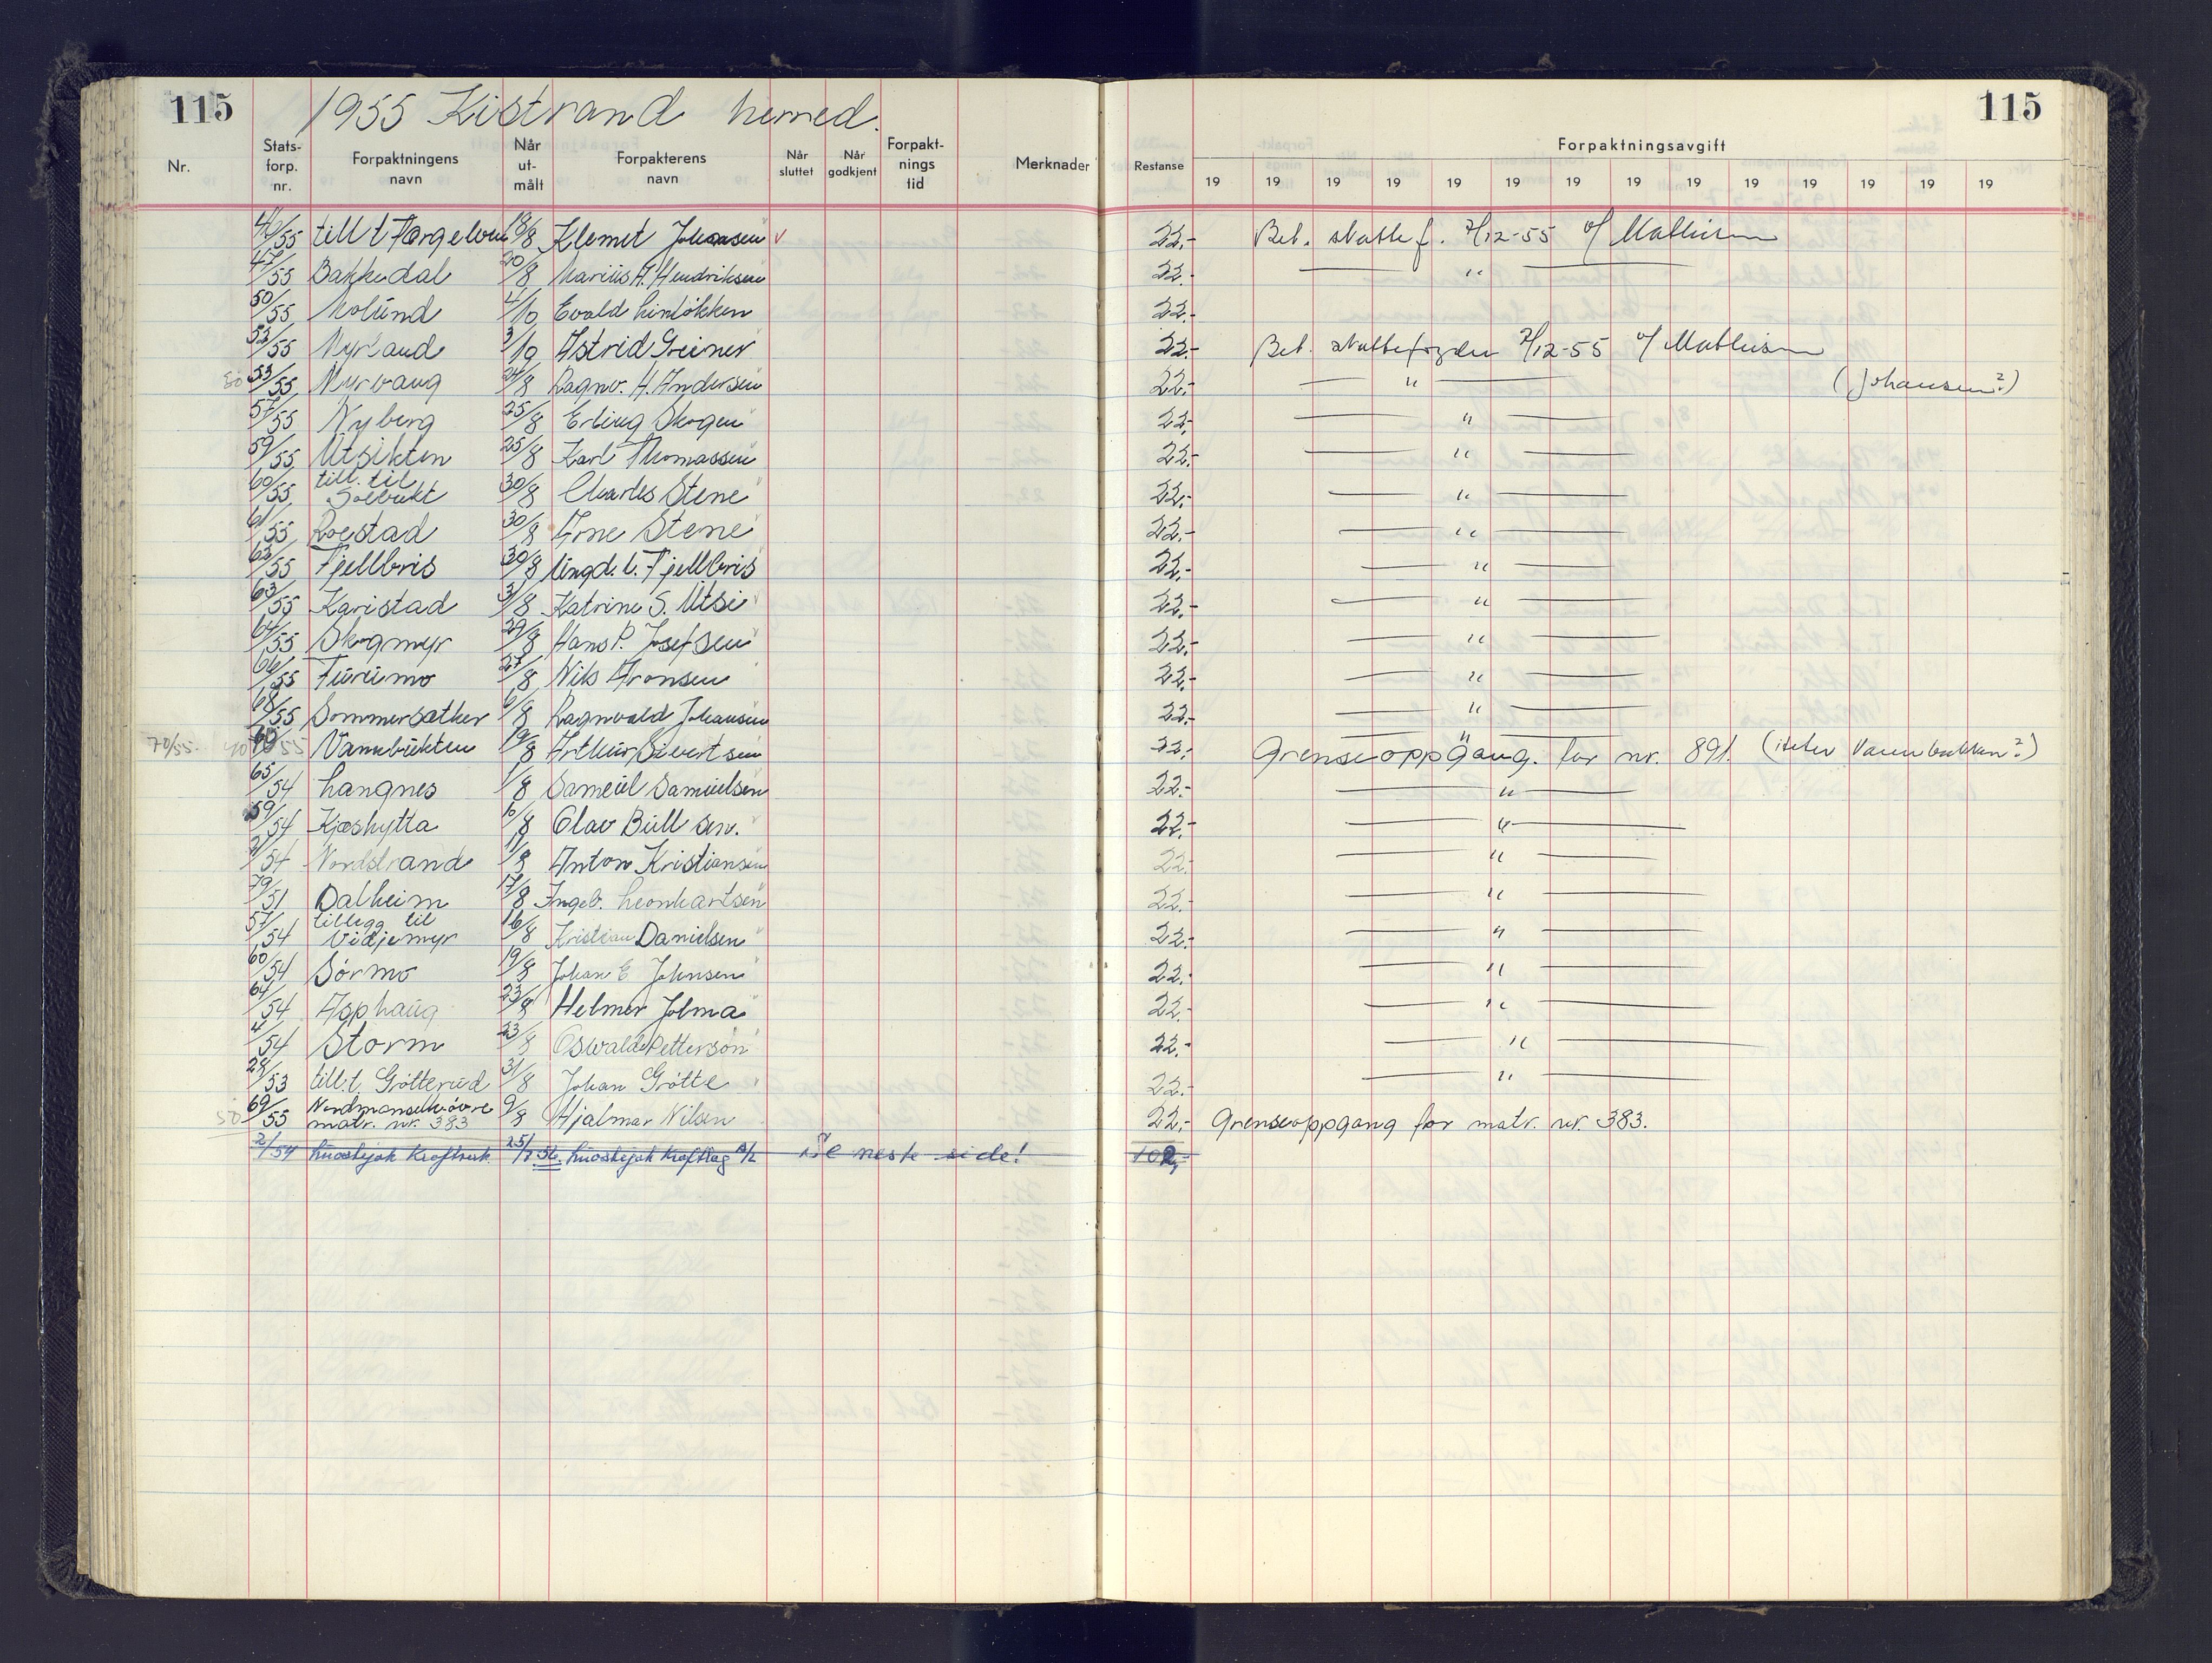 115 1955 Kistrand herred. 115
Nr. Stats-forp. nr. Forpaktningens navn Når ut-målt Forpakterens navn Når sluttet Når godkjent Forpakt-nings tid Merknader Restanse Forpaktningsavgift
19 19 19 19 19 19 19 19 19 19 19 19 19 19
46/55 till t 18/8 Klemet Johansen 22.- Bet. 2/12-55 v/ Mathisen
47/55 Bakkedal 20/8 Marius A. Hendriksen 22.- "
50/55 Molund 4/10 Evald 22.-
52/55 Nyland 3/10 Astrid Greiner 22.- Bet. 2/12-55 v/ Mathisen
53/55 Nyvang 24/8 Ragnv. H. Andersen 22.- " (Johansen?)
57/55 Nyberg 25/8 Erling Skogen 22,- "
59/55 Utsikten 25/8 Karl Thomassen 22.- "
60/55 till. til Solbukt 30/8 Charles Stene 22.- "
61/55 Roestad 30/8 Arne Stene 22.- "
62/55 Fjellbris 30/8 Fjellbris 22.- "
63/55 Karistad 31/8 Katrine S. Utsi 22.- "
64/55 Skogmyr 29/8 Hans P. Josefsen 22.- "
66/55 Furumo 27/8 Nils Aronsen 22.- "
68/55 Sommersæther 6/8 Ragnvald Johansen 22.- "
70/55. Vannbukten 19/8 Arthur Sivertsen 22.- " Grenseoppgang. for nr. 891.
65/54 Langnes 1/8 Samuel Samuelsen 22.- "
59/54 Kjæshytta 10/8 Olav Bull sen. 22.- "
2/54 Nordstrand 11/8 Anton Kristiansen 22.- "
79/51 Dalheim 17/8 Ingeb. Leonhartsen 22.- "
57/54 tillegg til Vidjemyr 16/8 Kristian Danielsen 22.- "
60/54 Sørmo 19/8 Johan E Johnsen 22.- "
64/54 Asphaug 23/8 Helmer Jolma 22.- "
4/54 Storm 23/8 Oswald Petterson 22.- "
28/53 till.t. Grötterud 31/8 Johan Grötte 22.- "
69/55 matr. nr. 383 9/8 Hjalmar Nilsen 22.- Grenseoppgang for matr. nr. 383.
2/54 Luostejok Kraftverk. 25/8 56. Luostejok Kraftlag A/L Se neste side! 102,-